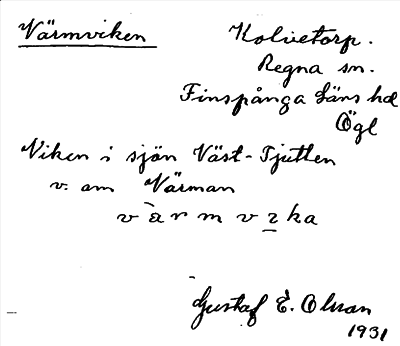 Värmviken
Kolvetorp.
Regna sn.
Finspånga Läns hd
Ögl
Viken i sjön Väst-Tjutten
v. om Värman
v à r m v ɪ ka
Gustaf E. Olsson
1931